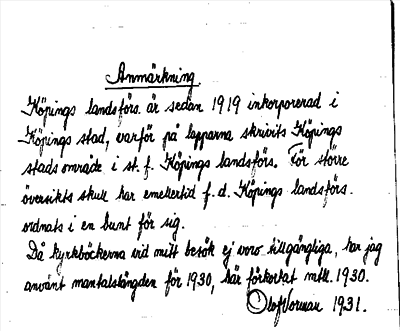 Anmärkning
Köpings landsförs. är sedan 1919 inkorporerad i
Köpings stad, varför på lapparna skrivits Köpings
stads område i st. f. Köpings landsförs. För större
översikts skull har emellertid f. d. Köpings landsförs.
ordnats i en bunt för sig.
Då kyrkböckerna vid mitt besök ej voro tillgängliga, har jag
använt mantalslängden för 1930, här förkortat mtll. 1930.
Olof Norman 1931.